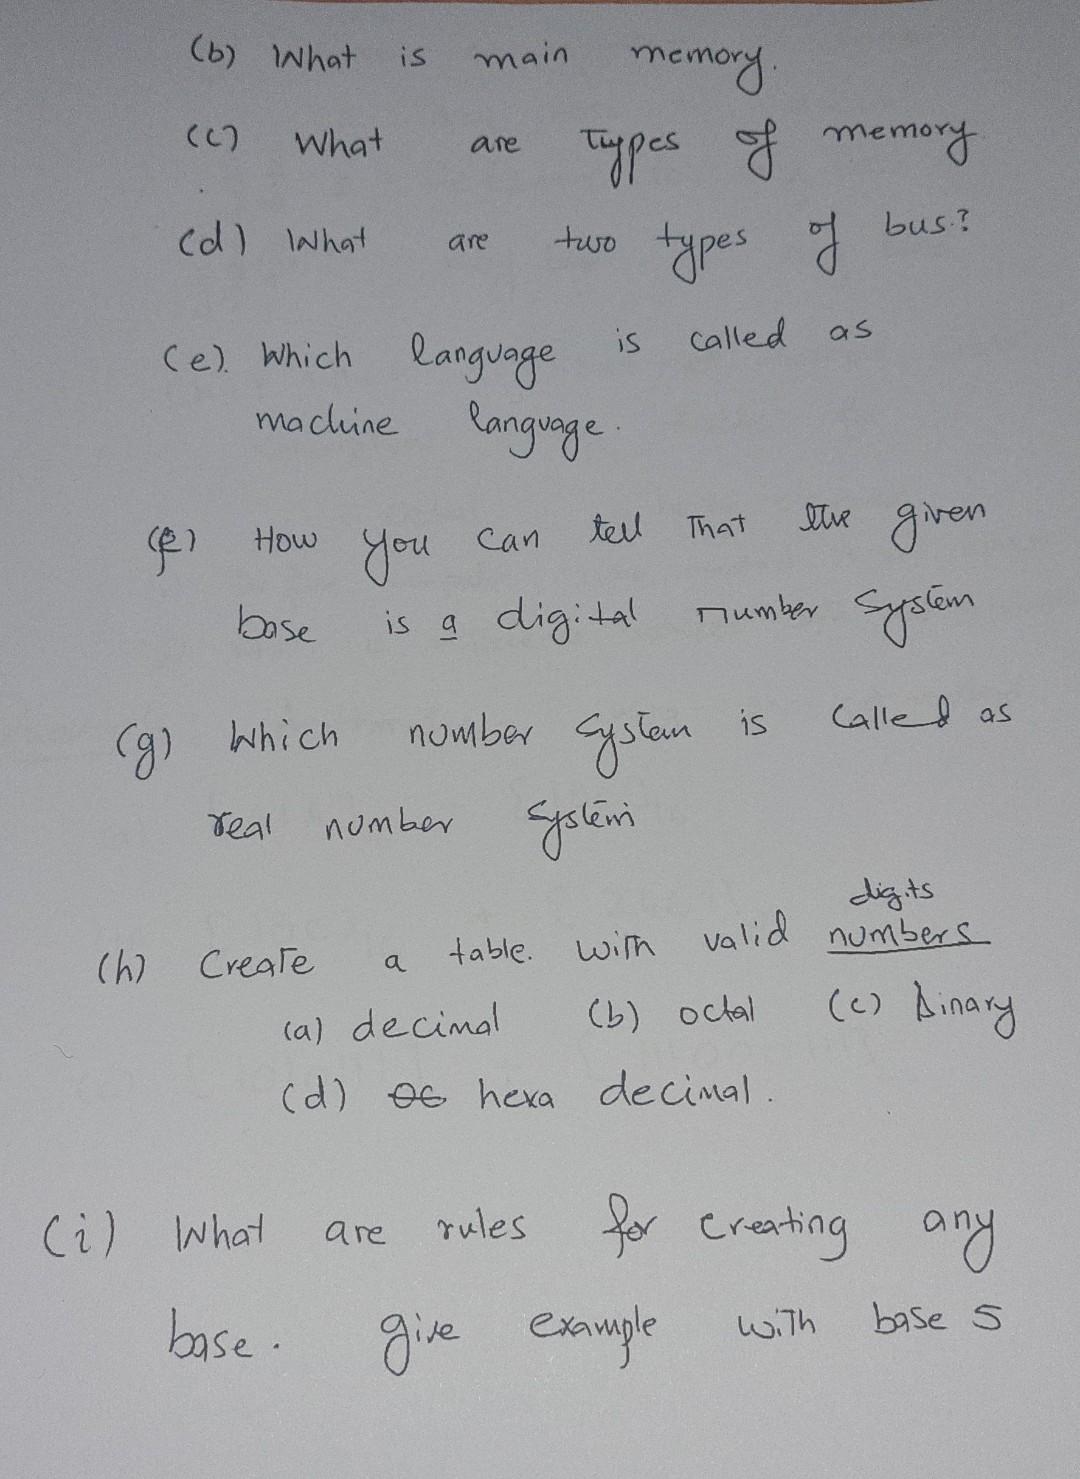 (b) What is main memory.
(c) What are Types of memory
(d) What are two types of bus.?
(e). Which language is called as
machine language.
(f) How you can tell That the given
base is a digital number System
(g) Which number System is called as
real number System
digits
(h) Create a table. with valid numbers
(a) decimal (b) octal (c) binary
(d) hexa decimal.
(i) What are rules for creating any
base. give example with base 5